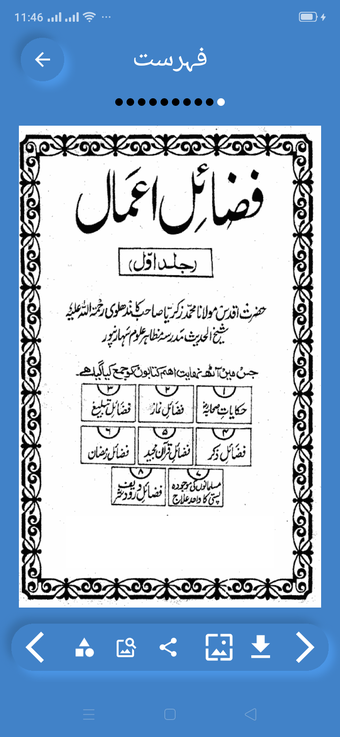 11:46
فہرست
فضائل اعمال
(جلد اوّل)
حضرت اقدس مولانا محمد زکریا صاحب کاندھلوی رحمۃ اللہ علیہ
شیخ الحدیث مدرسہ مظاہر علوم سہارنپور
جس میں آٹھ نہایت اہم کتابوں کو جمع کیا گیا ہے۔
۱ ۲ ۳
حکایات صحابہؓ فضائل نماز فضائل تبلیغ
۴ ۵ ۶
فضائل ذکر فضائل قرآن مجید فضائل رمضان
۷ ۸
مسلمانوں کی موجودہ پستی کا واحد علاج
فضائل درود شریف